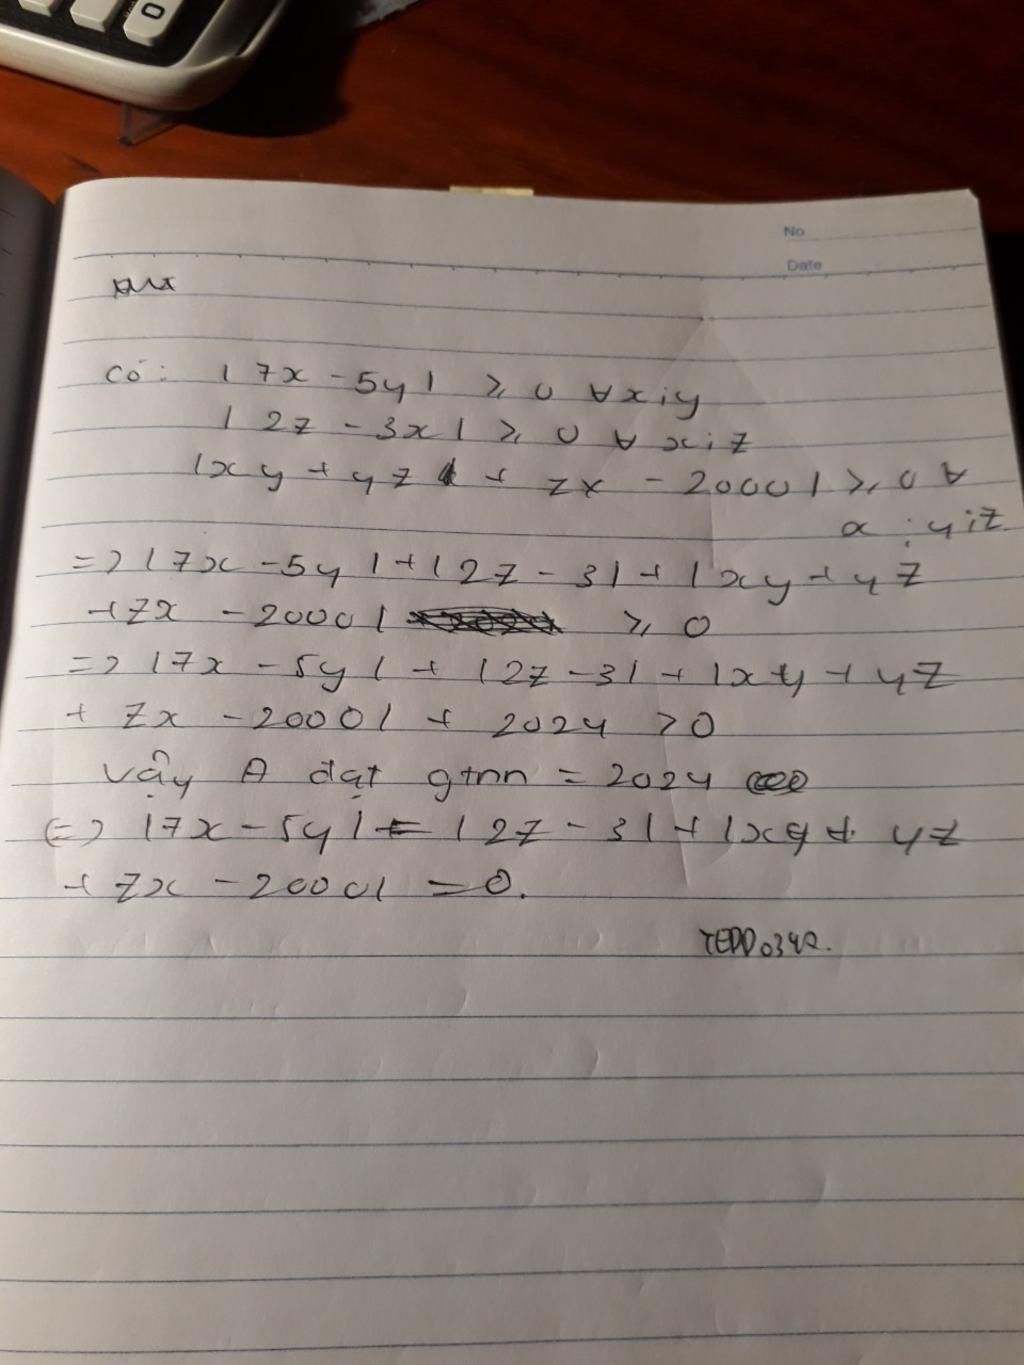 0
No
Date
có: |7x - 5y| ⩾ 0 ∀x;y
|2z - 3x| ⩾ 0 ∀ x;z
|xy + yz + zx - 2000| ⩾ 0 ∀
x;y;z
=> |7x - 5y| + |2z - 3| + |xy + yz
+ zx - 2000| ⩾ 0
=> |7x - 5y| + |2z - 3| + |xy + yz
+ zx - 2000| + 2024 > 0
vậy A đạt gtnn = 2024
(=> |7x - 5y| + |2z - 3| + |xy + yz
+ zx - 2000| = 0.